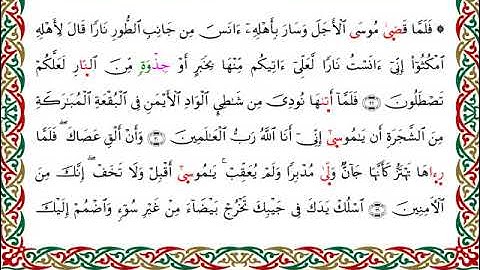 ۞ فَلَمَّا قَضىٰ مُوسَى ٱلْأَجَلَ وَسَارَ بِأَهْلِهِۦٓ ءَانَسَ مِن جَانِبِ ٱلطُّورِ نَارًا قَالَ لِأَهْلِهِ
ٱمْكُثُوٓا۟ إِنِّىٓ ءَانَسْتُ نَارًا لَّعَلِّىٓ ءَاتِيكُم مِّنْهَا بِخَبَرٍ أَوْ جِذْوَةٍ مِّنَ ٱلنّارِ لَعَلَّكُمْ
تَصْطَلُونَ ۝٢٩ فَلَمَّآ أَتىٰهَا نُودِىَ مِن شَـٰطِئِ ٱلْوَادِ ٱلْأَيْمَنِ فِى ٱلْبُقْعَةِ ٱلْمُبَـٰرَكَةِ
مِنَ ٱلشَّجَرَةِ أَن يَـٰمُوسىٰٓ إِنِّىٓ أَنَا ٱللَّهُ رَبُّ ٱلْعَـٰلَمِينَ ۝٣٠ وَأَنْ أَلْقِ عَصَاكَ ۖ فَلَمَّا
رءِاهَا تَهْتَزُّ كَأَنَّهَا جَآنٌّ وَلّىٰ مُدْبِرًا وَلَمْ يُعَقِّبْ ۚ يَـٰمُوسىٰٓ أَقْبِلْ وَلَا تَخَفْ ۖ إِنَّكَ مِنَ
ٱلْـَٔامِنِينَ ۝٣١ ٱسْلُكْ يَدَكَ فِى جَيْبِكَ تَخْرُجْ بَيْضَآءَ مِنْ غَيْرِ سُوٓءٍ وَٱضْمُمْ إِلَيْكَ